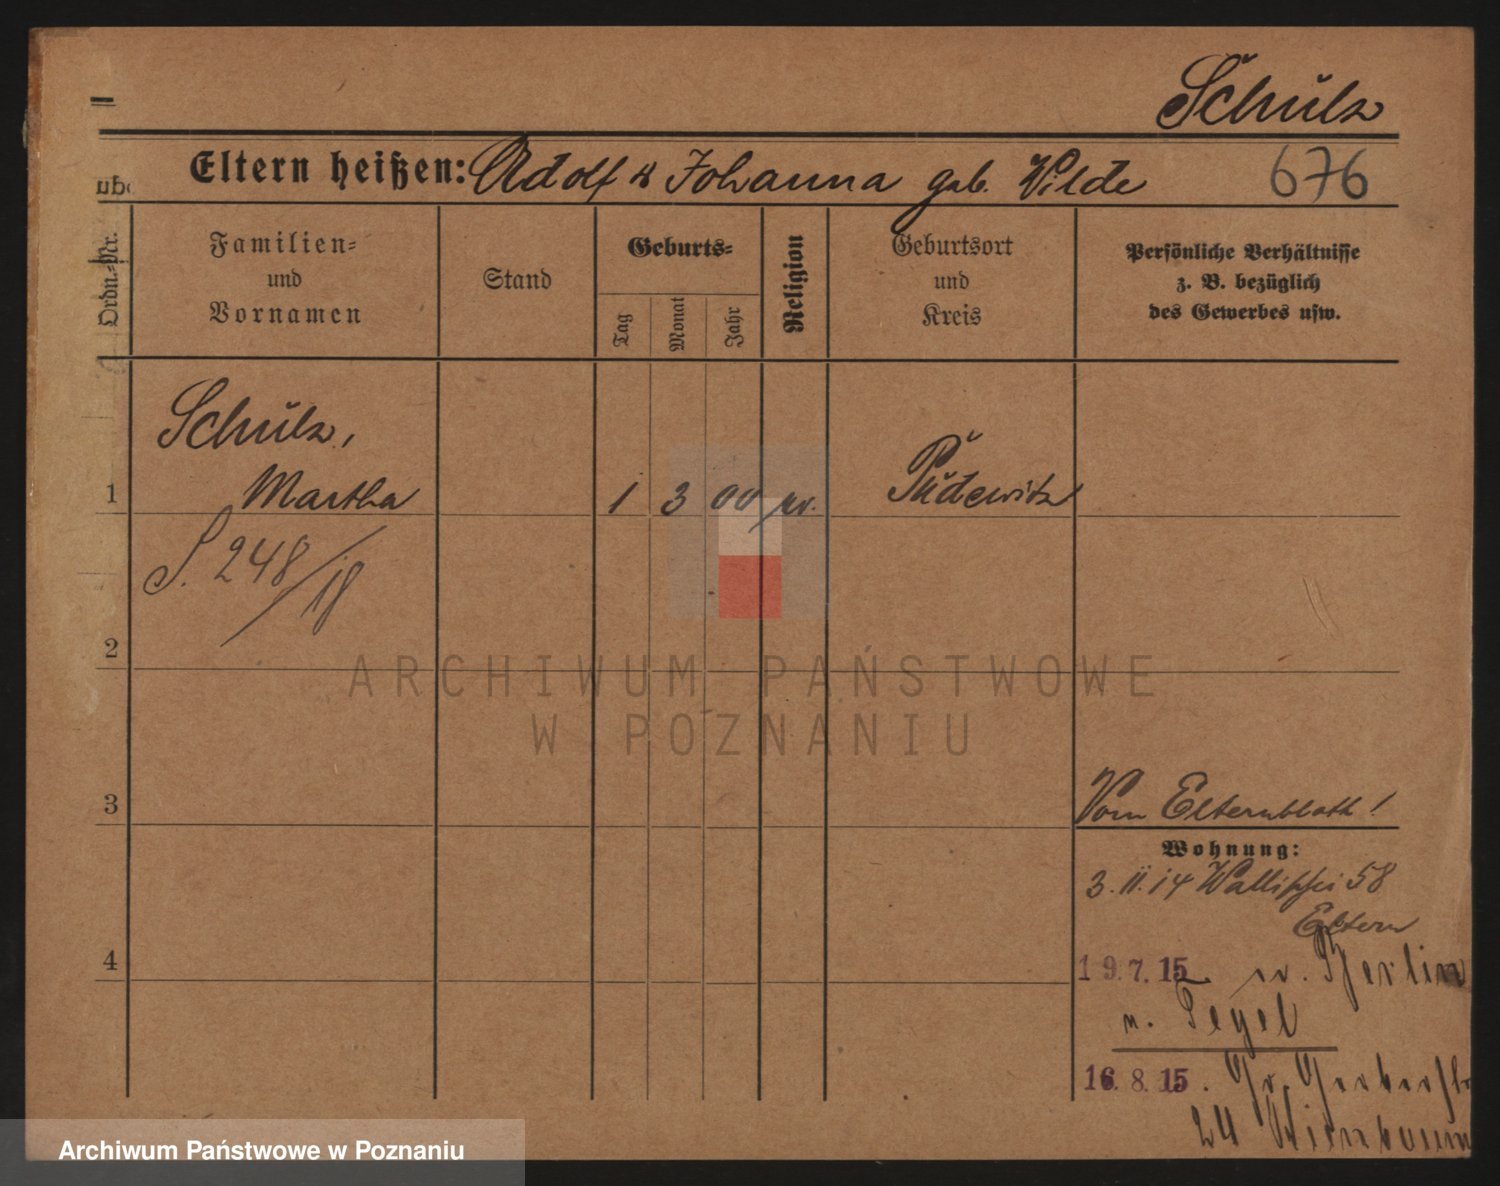 Schulz
Eltern heißen: Adolf u Johanna geb. Wilde 676
Ordn.-Nr.
Familien-
und
Vornamen
Stand
Geburts-
Tag
Monat
Jahr
Religion
Geburtsort
und
Kreis
Persönliche Verhältnisse
z. B. bezüglich
des Gewerbes usw.
Schulz,
1 Martha 1 3 00 Pudewitz
S. 248/18
2
ARCHIWUM PAŃSTWOWE
W POZNANIU
3
Vom Elternblatt!
Wohnung:
3. 11. 14 Wallischei 58
Eltern
4
19.7.15 Berlin
n. Tegel
16.8.15. Gr. Gerberstr
24
Archiwum Państwowe w Poznaniu